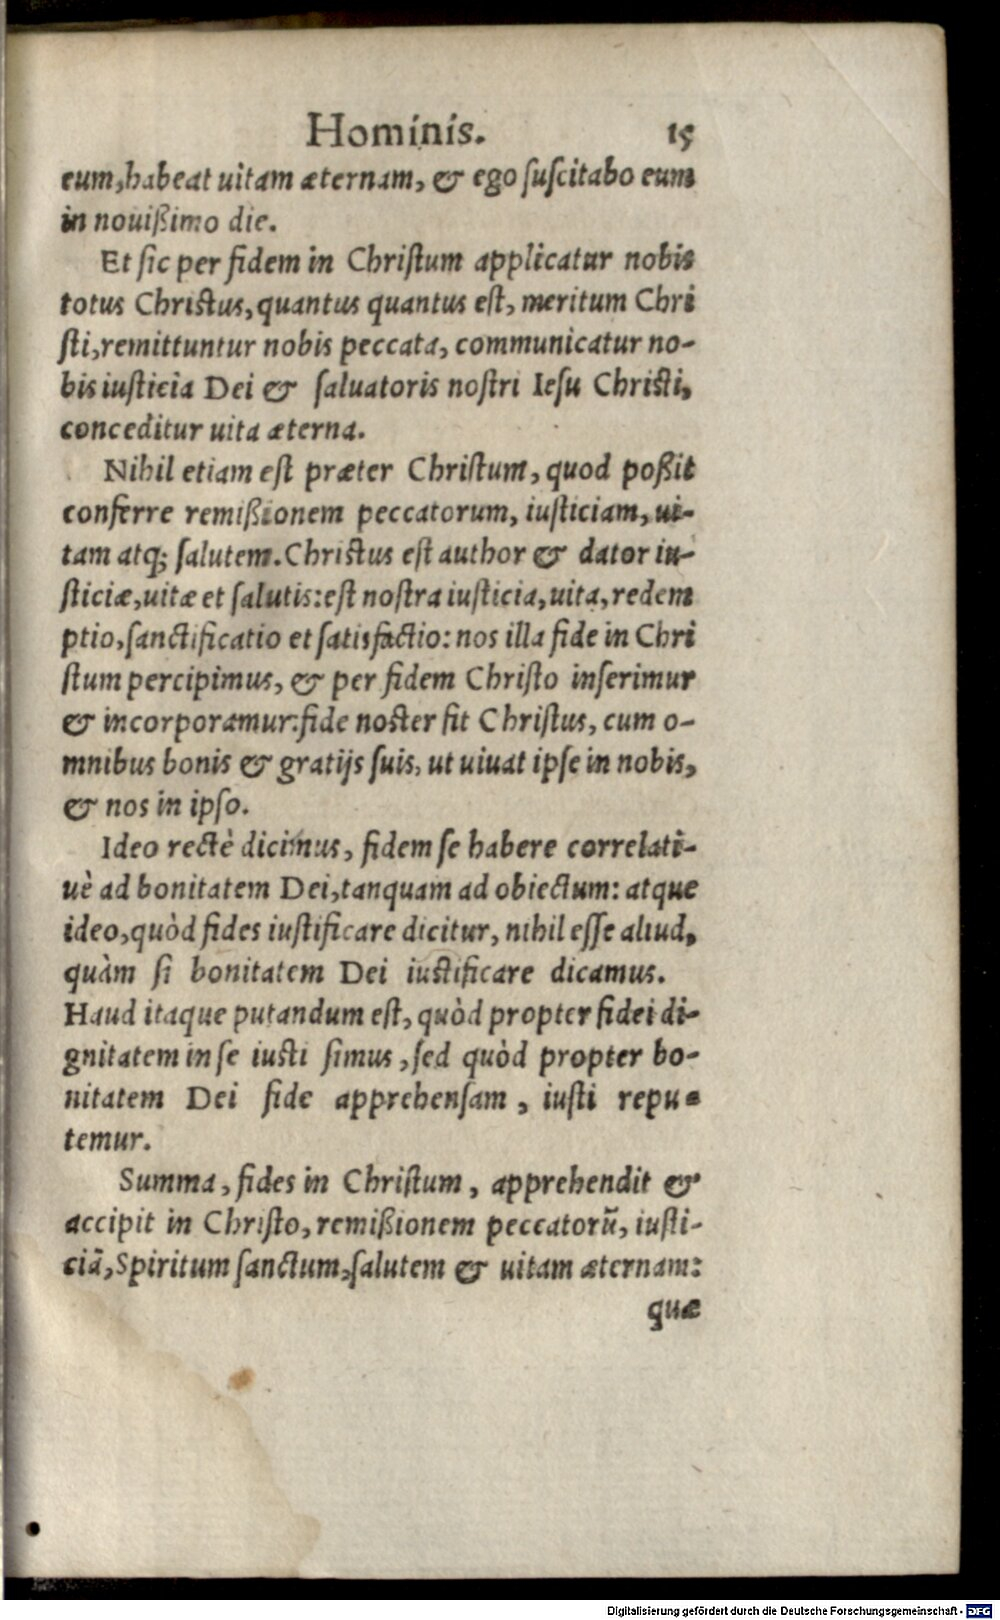 Hominis. 15
eum, habeat uitam æternam, & ego ſuſcitabo eum
in nouißimo die.
Et ſic per fidem in Chriſtum applicatur nobis
totus Chriſtus, quantus quantus eſt, meritum Chri
ſti, remittuntur nobis peccata, communicatur no-
bis iuſticia Dei & ſaluatoris noſtri Ieſu Chriſti,
conceditur uita æterna.
Nihil etiam eſt præter Chriſtum, quod poßit
conferre remißionem peccatorum, iuſticiam, ui-
tam atq; ſalutem. Chriſtus eſt author & dator iu-
ſticiæ, uitæ et ſalutis: eſt noſtra iuſticia, uita, redem
ptio, ſanctificatio et ſatisfactio: nos illa fide in Chri
ſtum percipimus, & per fidem Chriſto inſerimur
& incorporamur: fide noſter fit Chriſtus, cum o-
mnibus bonis & gratijs ſuis, ut uiuat ipſe in nobis,
& nos in ipſo.
Ideo rectè dicimus, fidem ſe habere correlati-
uè ad bonitatem Dei, tanquam ad obiectum: atque
ideo, quòd fides iuſtificare dicitur, nihil eſſe aliud,
quàm ſi bonitatem Dei iuſtificare dicamus.
Haud itaque putandum eſt, quòd propter fidei di-
gnitatem in ſe iuſti ſimus, ſed quòd propter bo-
nitatem Dei fide apprehenſam, iuſti repu-
temur.
Summa, fides in Chriſtum, apprehendit &
accipit in Chriſto, remißionem peccatorũ, iuſti-
ciã, Spiritum ſanctum, ſalutem & uitam æternam:
quæ
Digitalisierung gefördert durch die Deutsche Forschungsgemeinschaft - DFG